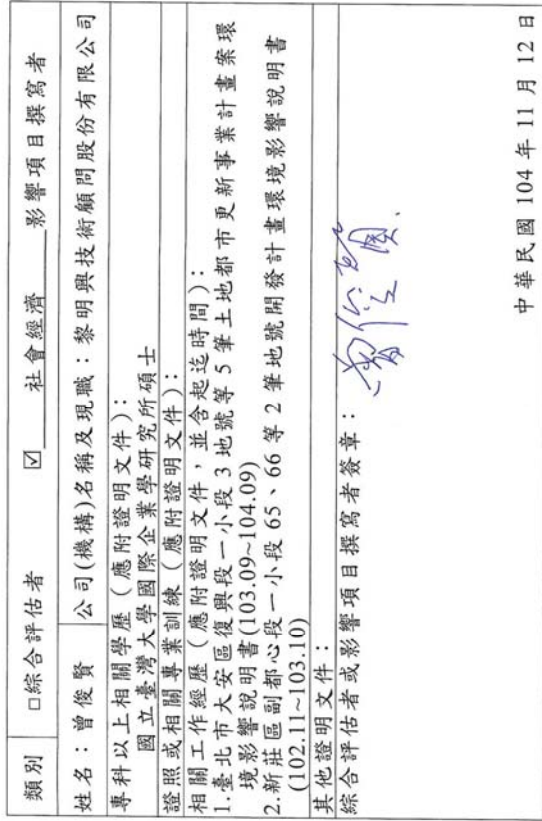 類別 □綜合評估者 ☑ 社會經濟 影響項目撰寫者
姓名：曾俊賢 公司(機構)名稱及現職：黎明興技術顧問股份有限公司
專科以上相關學歷（應附證明文件）：
國立臺灣大學國際企業學研究所碩士
證照或相關專業訓練（應附證明文件）：
相關工作經歷（應附證明文件，並含起迄時間）：
1.臺北市大安區復興段一小段3地號等5筆土地都市更新事業計畫案環
境影響說明書(103.09~104.09)
2.新莊區副都心段一小段65、66等2筆地號開發計畫環境影響說明書
(102.11~103.10)
其他證明文件：
綜合評估者或影響項目撰寫者簽章：曾俊賢
中華民國104年11月12日